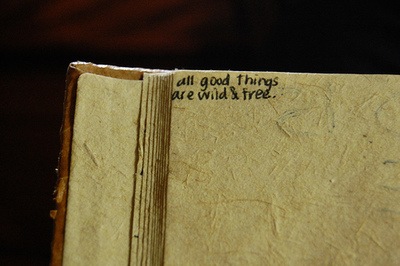 all good things
are wild & free.